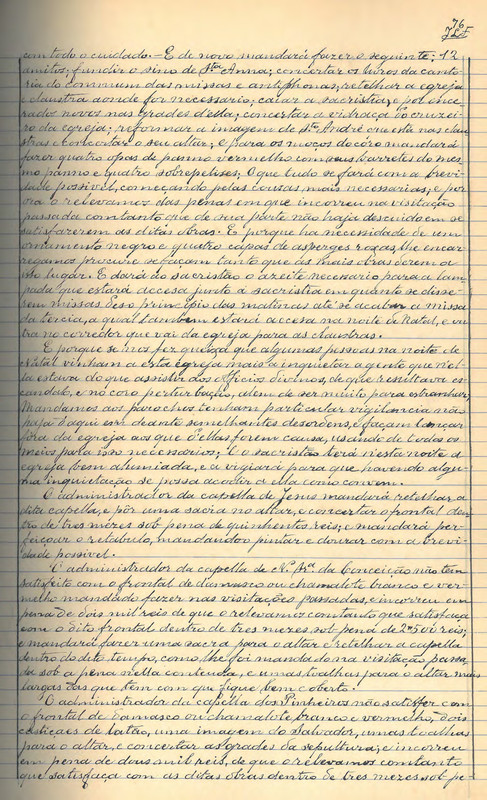 76
com todo o cuidado. - E de novo mandará fazer o seguinte: 12
amitos; fundir o sino de Sta Anna; concertar os livros da canto-
ria do commum das missas e antiphonas; retelhar a egreja
e claustra aonde for necessario; caiar a sacristia, e pôr ence-
rados novos nas grades d'ella; concertar a vidraça do cruzei-
ro da egreja; reformar a imagem de Sto André que está nas claus-
tras e concertar o seu altar; e para os moços do côro mandará
fazer quatro opas de panno vermelho com seus barretes do mes-
mo panno e quatro sobrepelises; O que tudo se fará com a brevi-
dade possivel, começando pelas cousas mais necessarias; e por
ora o relevamos das penas em que incorreu na visitação
passada comtanto que de sua parte não haja descuido em se
satisfazerem as ditas obras. E porque ha necessidade de um
ornamento negro e quatro capas de asperges roxas, lhe encar-
regamos procure se façam tanto que as mais obras derem a
isso lugar. E dará ao sacristão o azeite necessario para a lam-
pada que estará accesa junto á sacristia em quanto se disse-
rem missas des o principio das matinas até se acabar a missa
da tercia, a qual tambem estará accesa na noite de Natal, e ou-
tra no corredor que vai da egreja para as claustras.
E porque se nos fez queixa que algumas pessoas na noite de
Natal vinham a esta egreja mais a inquietar a gente que n'el-
la estava do que assistir aos officios divinos, de que resultava es-
candalo, e no coro perturbação, alem de ser muito para estranhar;
Mandamos aos parochos tenham particular vigilancia não
haja d'aqui em deante semelhantes desordens, e façam lançar
fóra da egreja aos que d'ellas forem causa, usando de todos os
meios para isso necessarios; E o sacristão terá n'esta noite a
egreja bem alumiada, e a vigiará para que havendo algu-
ma inquietação se possa acodir a ella como convem.
O administrador da capella de Jesus mandará retelhar a
dita capella, e pôr uma sacra no altar, e concertar o frontal den-
tro de tres mezes sob pena de quinhentos reis; e mandará per-
feiçoar o retabulo, mandando-o pintar e dourar com a brevi-
dade possivel.
O administrador da capella de N.ª Sr.ª da Conceição não tem
satisfeito com o frontal de damasco ou chamalote branco e ver-
melho mandado fazer nas visitações passadas, e incorreu em
pena de dois mil reis de que o relevamos comtanto que satisfaça
com o dito frontal dentro de tres mezes sob pena de 2$500 reis;
e mandará fazer uma sacra para o altar e retelhar a capella
dentro do dito tempo, como lhe foi mandado na visitação passa-
da sob a pena n'ella contenda, e umas toalhas para o altar mais
largas das que tem com que fique bem coberto.
O administrador da capella dos Pinheiros não satisfez com
o frontal de damasco ou chamalote branco e vermelho, dois
castiçaes de latão, uma imagem do Salvador, umas toalhas
para o altar, e concertar as grades da sepultura; e incorreu
em pena de dous mil reis, de que o relevamos comtanto
que satisfaça com as ditas obras dentro de tres mezes sob pe-